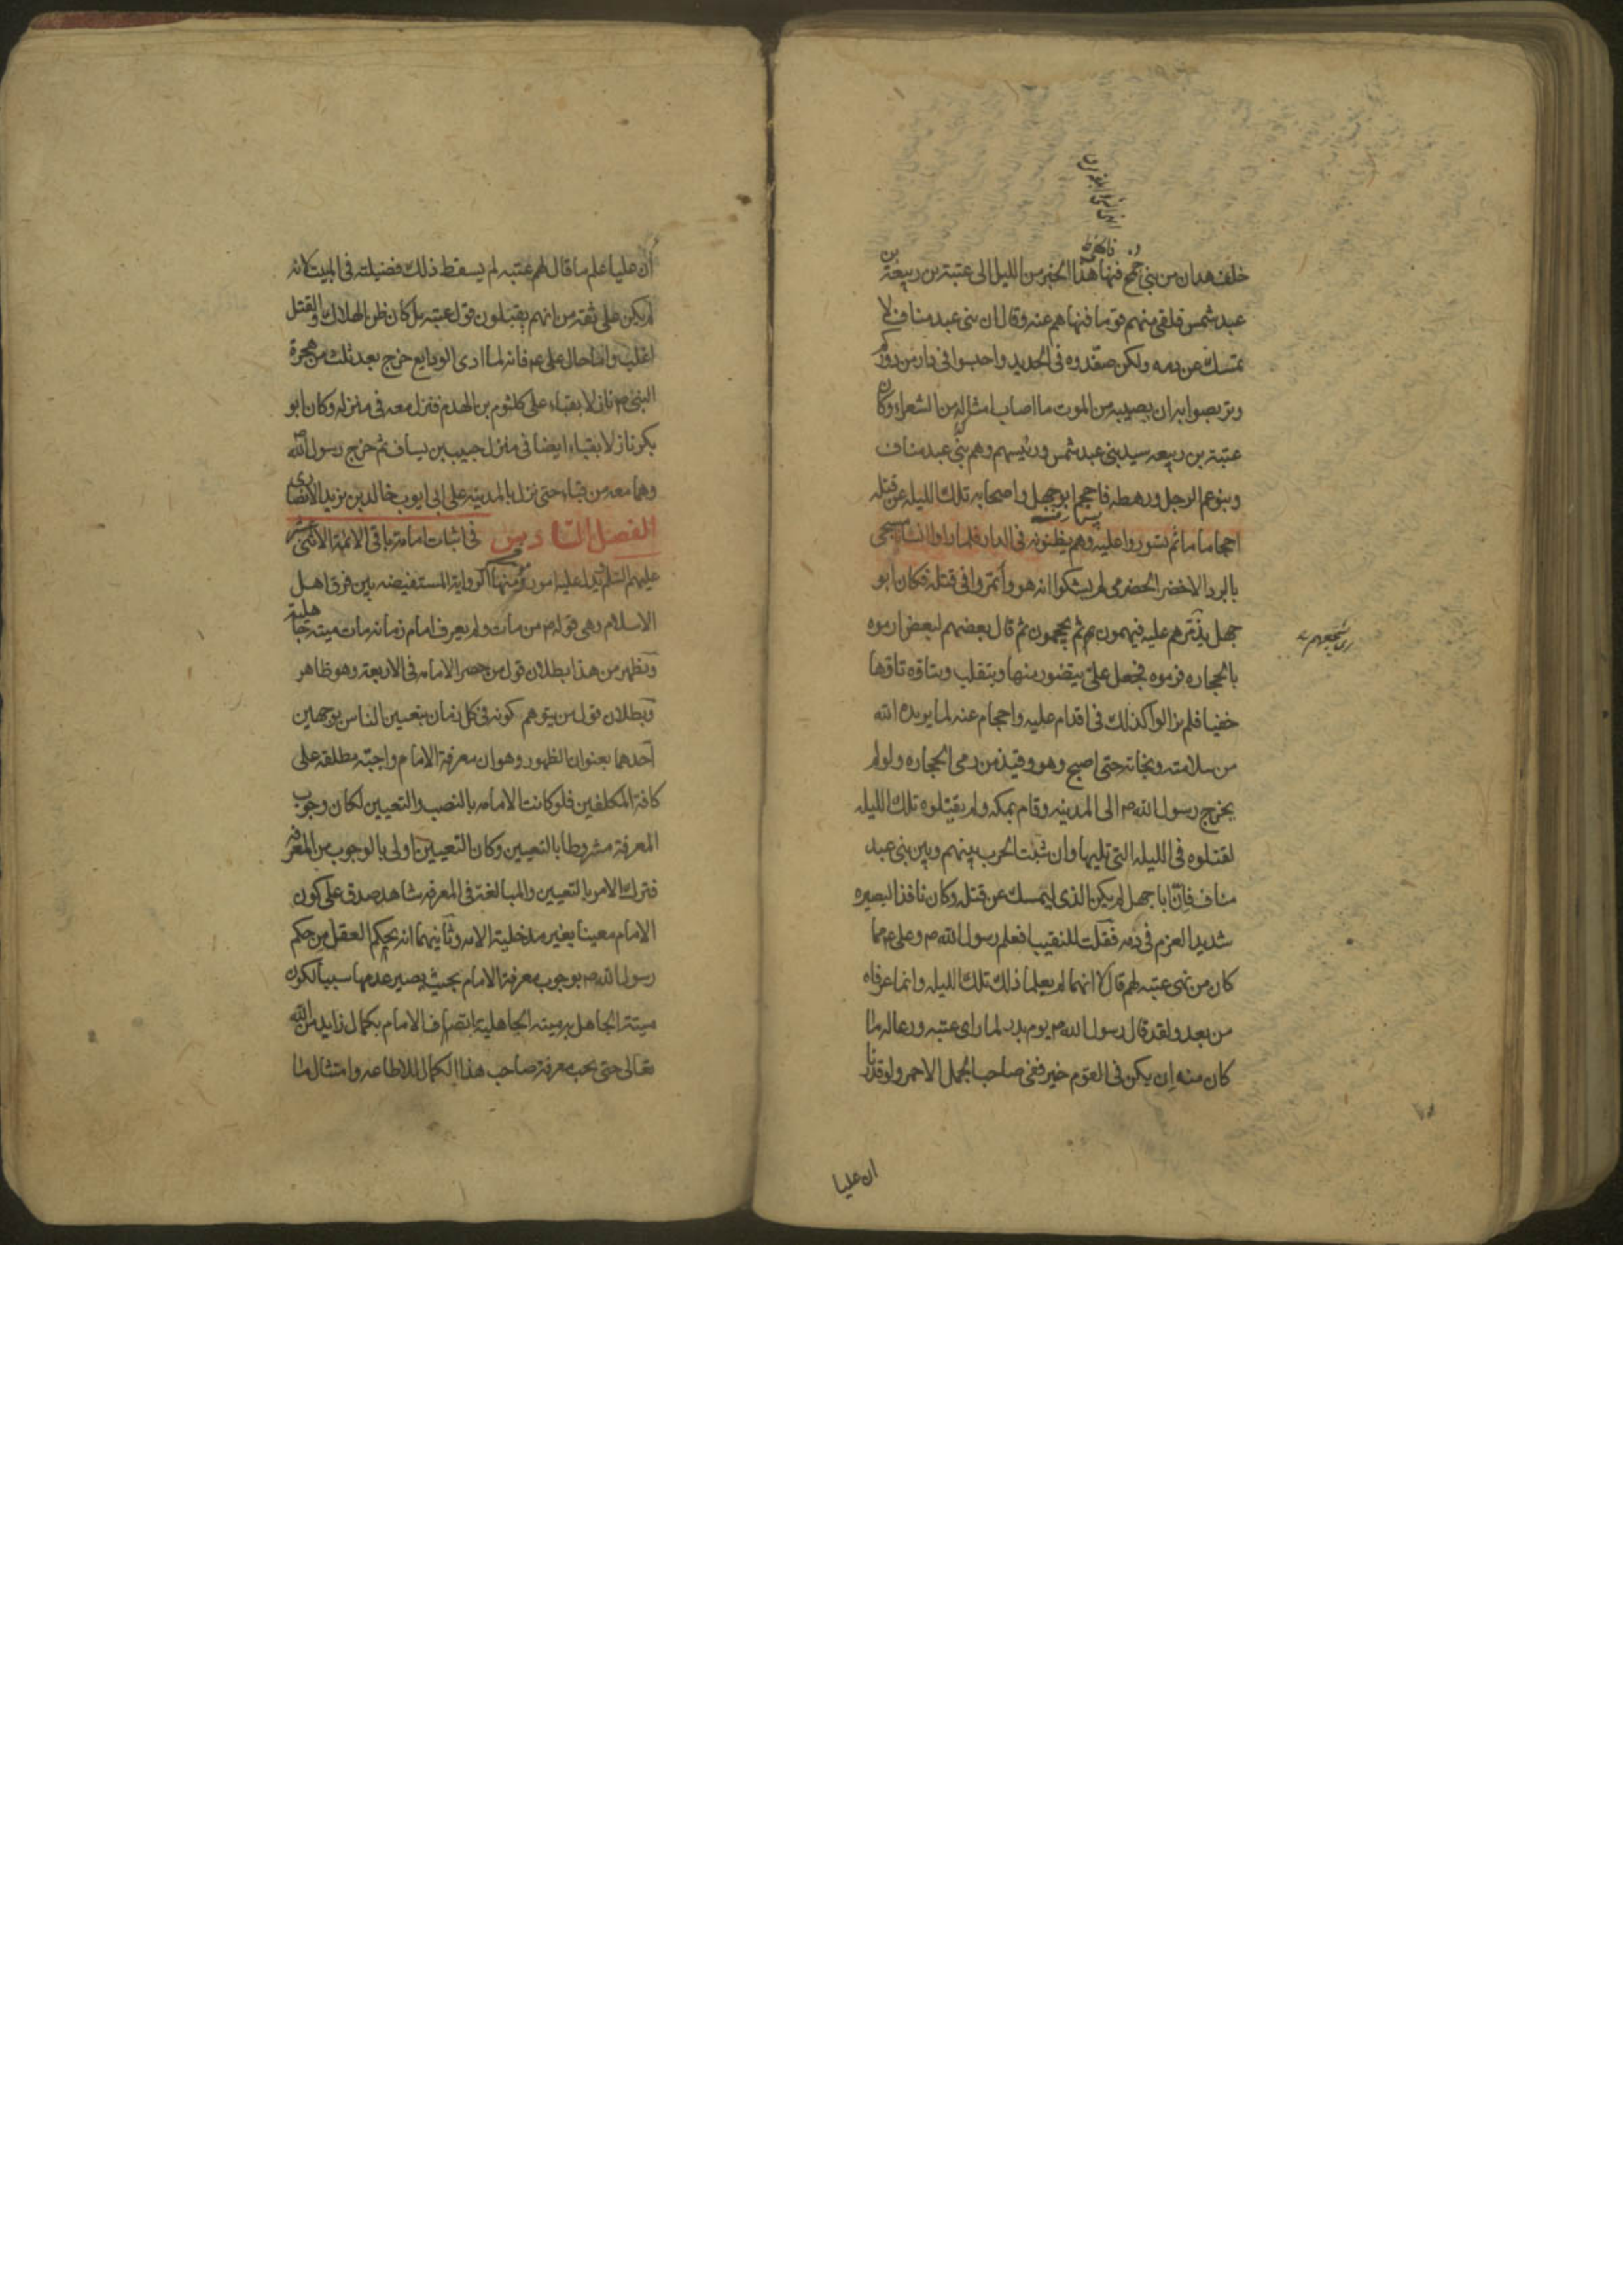 خلف هدان من بنى جمح فنها هذا الخبر من الليل الى عتبة بن ربيعة بن
عبد شمس فلقى منهم قوما فنهاهم عنه وقال ان بنى عبد مناف لا
تمسك عن دمه ولكن صفدوه فى الحديد واحبسوا فى دار من دوركم
وتربصوا به ان يصيبه من الموت ما اصاب امثاله من الشعراء وكان
عتبة بن ربيعه سيد بنى عبد شمس ورئيسهم وهم بنى عبد مناف
وبنو عم الرجل ورهطه فاحجم ابو جهل واصحابه تلك الليله عن قتله
احجاما ما ثم تسوروا عليه وهم يظنونه فى الدار فلما راوا انسانا مسجى
بالبرد الاخضر الحضرمى لم يشكوا انه هو وائتمروا فى قتله فكان ابو
جهل يذمرهم عليه فيهمون به ثم يحجمون ثم قال بعضهم لبعض ارموه
بالحجاره فرموه فجعل على يتضور منها ويتقلب ويتاوه تاوها
خفيا فلم يزالوا كذلك فى اقدام عليه واحجام عنه لما يريده الله
من سلامته ونجاته حتى اصبح وهو وقيذ من رمى الحجاره ولو لم
يخرج رسول الله ص الى المدينه وقام بمكه ولم يقتلوه تلك الليله
لقتلوه فى الليله التى تليها وان شبت الحرب بينهم وبين بنى عبد
مناف فان ابا جهل لم يكن الذى ليمسك عن قتله وكان نافذ البصيره
شديد العزم فى دمه فقلت للنقيب افعلم رسول الله ص وعلى ع بما
كان من نهى عتبه لهم قال لا انهما لم يعلما ذلك تلك الليله وانما عرفاه
من بعد ولقد قال رسول الله ص يوم بدر لما راى عتبه ورعاله ما
كان منه ان يكن فى القوم خير ففى صاحب الجمل الاحمر ولو قدرنا
ان عليا
ان عليا علم ما قال لهم عتبه لم يسقط ذلك فضيلته فى المبيت لانه
لم يكن على ثقه من انهم يقبلون قول عتبه بل كان ظن الهلاك والقتل
اغلب واما حال على ع فانه لما ادى الودايع خرج بعد ثلث من هجرة
النبى ص نازلا بقباء على كلثوم بن الهدم فنزل معه فى منزله وكان ابو
بكر نازلا بقباء ايضا فى منزل حبيب بن يساف ثم خرج رسول الله ص
وهما معه من قباء حتى نزل بالمدينه على ابى ايوب خالد بن يزيد الانصارى
الفصل السادس فى اثبات امامة باقى الائمة الاثنى عشر
عليهم السلم يدل عليه امور منها الروايه المستفيضه بين فرق اهل
الاسلام وهى قوله ص من مات ولم يعرف امام زمانه مات ميته جاهلية
ويظهر من هذا بطلان قول من حصر الامامه فى الاربعه وهو ظاهر
وبطلان قول من يتوهم كونه فى كل زمان بتعيين الناس بوجهين
احدهما بعنوان الظهور وهو ان معرفة الامام واجبة مطلقه على
كافة المكلفين فلو كانت الامامه بالنصب والتعيين لكان وجوب
المعرفة مشروطا بالتعيين وكان التعيين اولى بالوجوب من المعرفه
فترك الامر بالتعيين والمبالغة فى المعرفه شاهد صدق على كون
الامام معينا بغير مدخلية الامه وثانيهما انه يحكم العقل من حكم
رسول الله ص بوجوب معرفة الامام بحيث يصير عدمها سببا لكون
ميتة الجاهل به ميته الجاهلية اتصاف الامام بكمال زايد من الله
تعالى حتى يجب معرفة صاحب هذا الكمال للاطاعه وامتثال ما